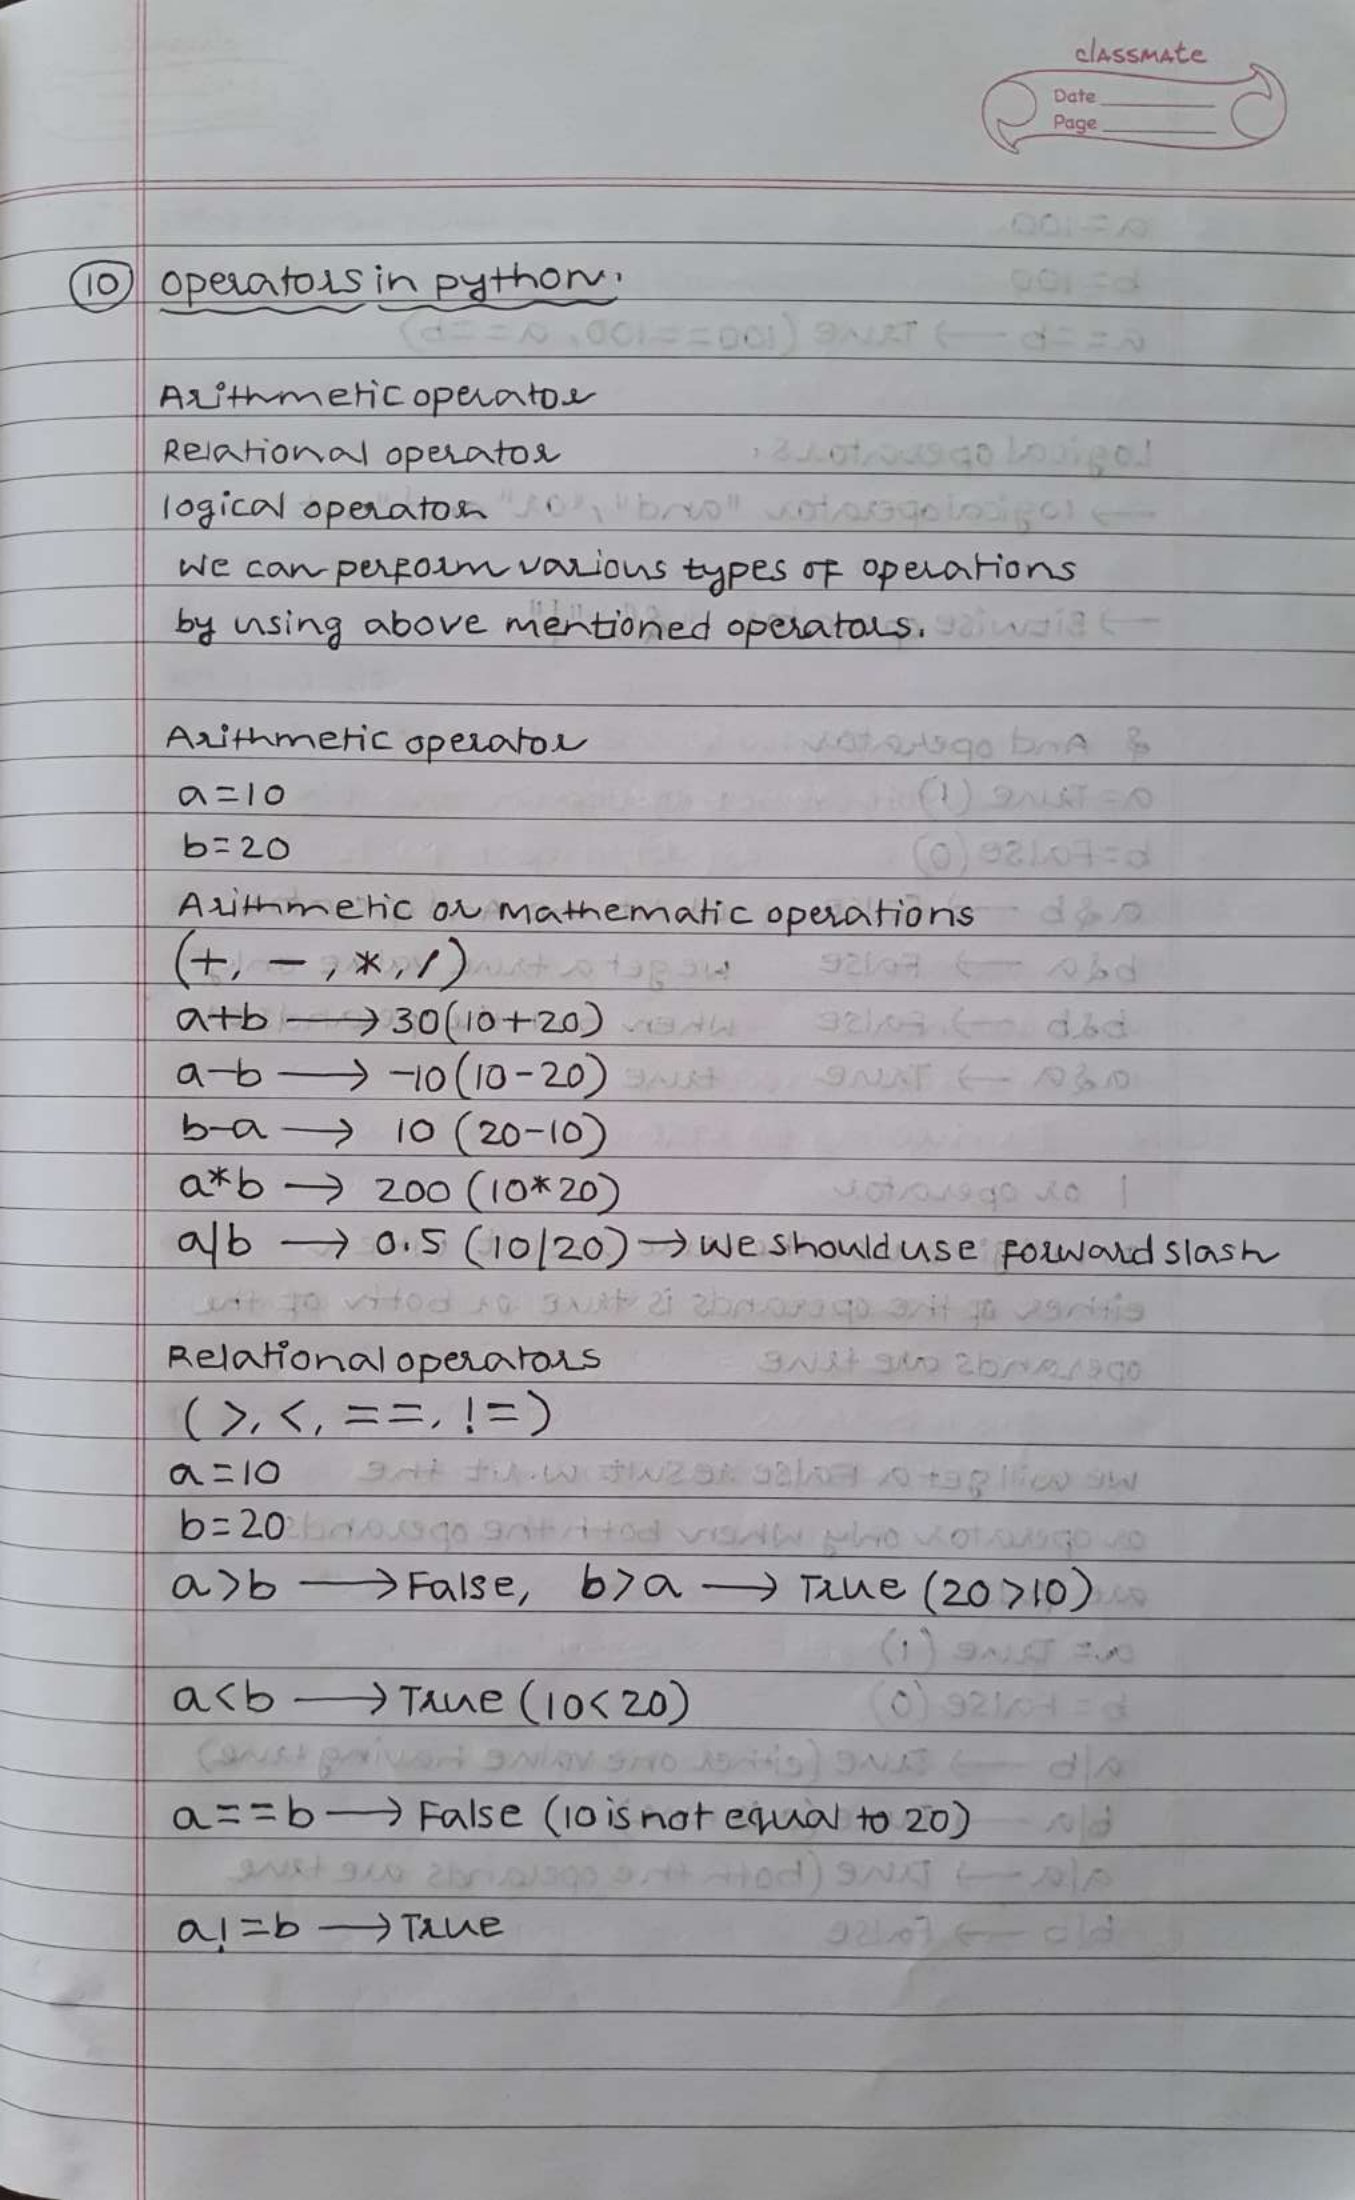 classmate
Date
Page
10 operators in python.
Arithmetic operator
Relational operator
logical operator
we can perform various types of operations
by using above mentioned operators.
Arithmetic operator
a=10
b=20
Arithmetic or mathematic operations
(+, -, *, /)
a+b ⟶ 30(10+20)
a-b ⟶ -10(10-20)
b-a ⟶ 10 (20-10)
a*b ⟶ 200 (10*20)
a/b ⟶ 0.5 (10/20) → we should use forward slash
Relational operators
(>, <, ==, !=)
a=10
b=20
a>b ⟶ False, b>a ⟶ True (20>10)
a<b ⟶ True (10<20)
a==b ⟶ False (10 is not equal to 20)
a!=b ⟶ True